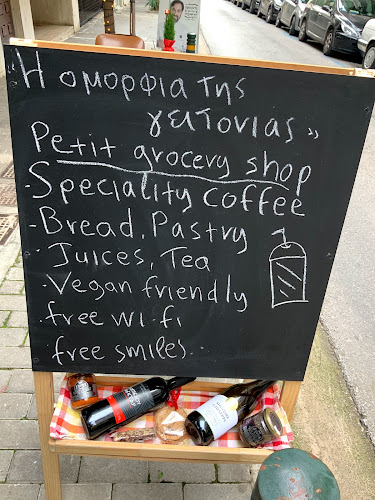 "Η ομορφια της
γειτονιας"
Petit grocery shop
Speciality coffee
-Bread, Pastry
-Juices, Tea
-Vegan friendly
-free wi fi
-free smiles